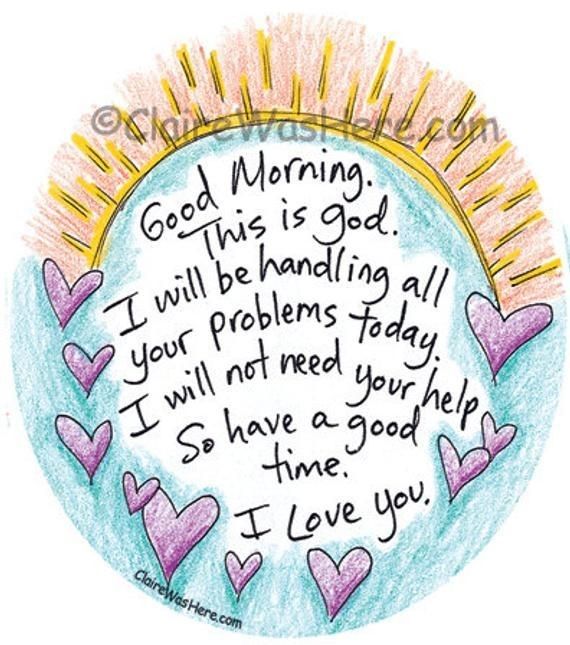 ©ClaireWasHere.com
Good Morning.
This is god.
I will be handling all
your problems today.
I will not need your help
So have a good
time.
I Love you.
ClaireWasHere.com